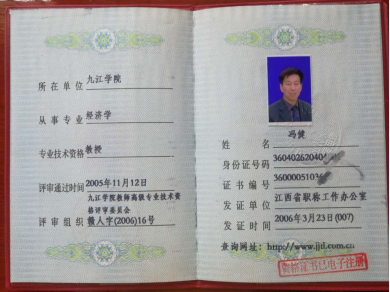 所在单位 九江学院
从事专业 经济学
专业技术资格 教授
评审通过时间 2005年11月12日
九江学院教师高级专业技术资
格评审委员会
评审组织 赣人字(2006)16号
姓名 冯健
身份证号码 3604026204
证书编号 36000510
发证单位 江西省职称工作办公室
发证时间 2006年3月23日(007)
查询网址: http://www.jjtl.com.cn
资格证书已电子注册